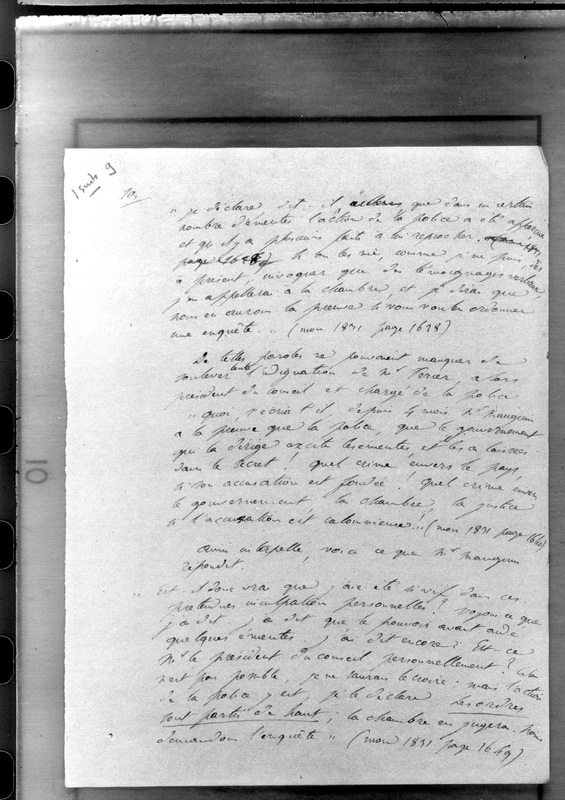 1 suite 9
10.
" je déclare dit-il ailleurs que dans un certain
nombre d'émeutes l'action de la police a été apperçue
et qu'il y a plusieurs faits à lui reprocher.
page 1628) si on les nie, comme je ne puis, dès
à présent, invoquer que des témoignages verbaux
j'en appellerai à la chambre, et je dirai que
nous en aurons la preuve si vous voulez ordonner
une enquête. " (mon 1831 page 1628)
De telles paroles ne pouvaient manquer de
soulever toute l'indignation de Mr Perier, alors
président du conseil et chargé de la police
" quoi, s'écria-t-il, depuis 4 mois Mr Mauguin
a la preuve que la police, que le gouvernement
qui la dirige excite les émeutes, et les a laissés
dans le secret ! quel crime envers le pays,
si son accusation est fondée ! quel crime envers
le gouvernement, la chambre, la justice
si l'accusation est calomnieuse. " (mon 1831 page 1640)
Ainsi interpellé, voici ce que Mr Mauguin
répondit.
" Est-il donc vrai que j'aie été si vif dans ces
prétendues inculpations personnelles ? voyons ce que
j'ai dit. j'ai dit que le pouvoir avait aidé
quelques émeutes. j'ai dit encore ? Est-ce
Mr le président du conseil personnellement ? cela
n'est pas possible, je ne saurais le croire. mais l'action
de la police y est, je le déclare les ordres
sont partis de haut, la chambre en jugera. nous
demandons l'enquête " (mon 1831 page 1649)
10